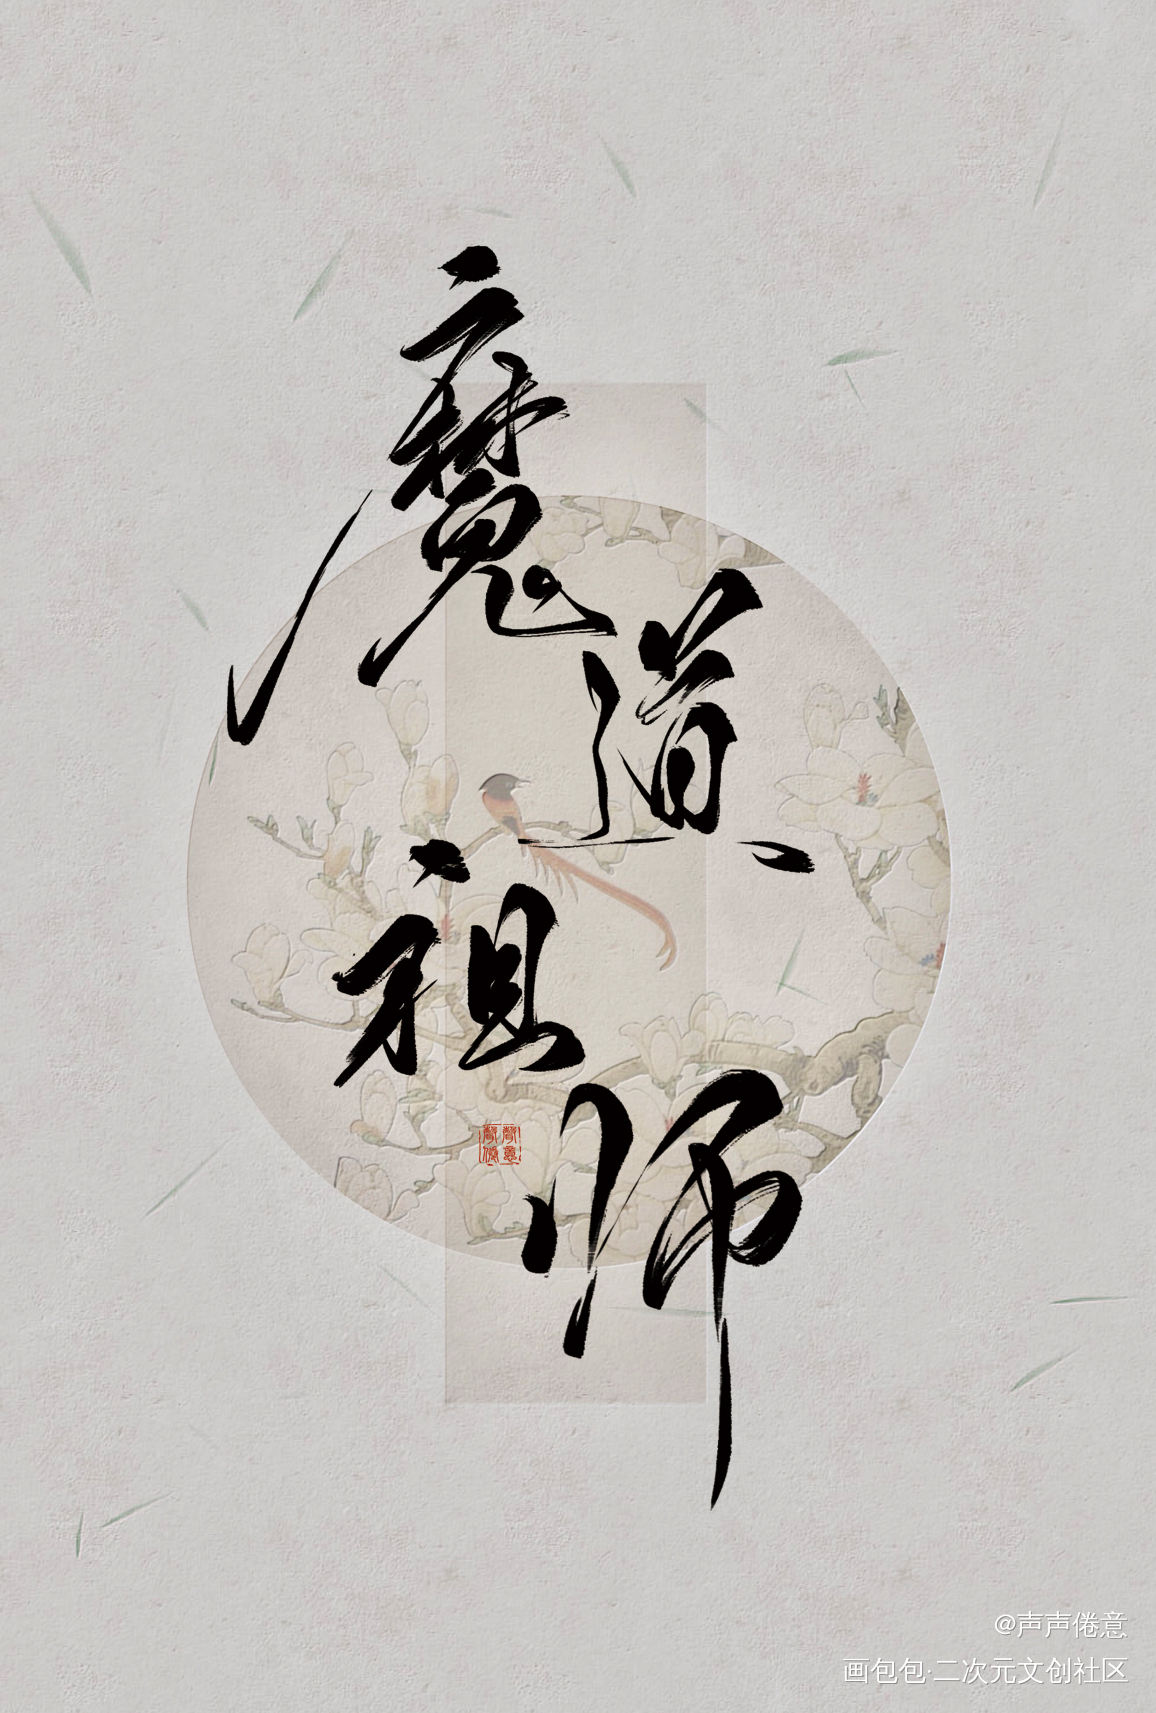 魔道祖师
聲聲倦意
@声声倦意
画包包·二次元文创社区